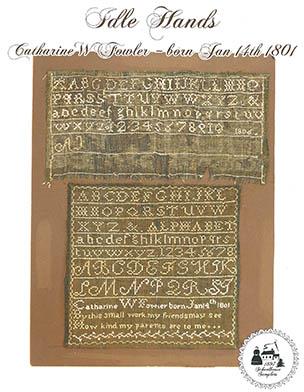 Idle Hands
Catharine W Fowler - born Jan 14th, 1801
ABCDEFGHIJKLMNO
PQRSSTTUVWWXYZ&
abcdefghiklmnopqrstu
vwxyz12345678910 1806
AD
ABCDEFGHIJKLM
NOPQRSTUVW
XYZ & ALPHABET
abcdefghiklmnopqrs
tuvwxyz1234
ABCDEFGHIJK
LMNOPQRST
Catharine W Fowler born Jan 14th 1801
By this small work my friends may see
How kind my parents are to me...
1897
Schoolhouse
Samplers